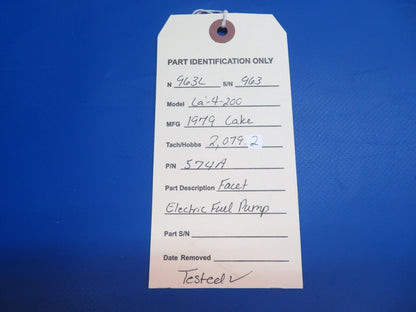 PART IDENTIFICATION ONLY
N 963L S/N 963
Model La-4-200
MFG 1979 Lake
Tach/Hobbs 2,079.2
P/N 574A
Part Description Facet
Electric Fuel Pump
Part S/N
Date Removed
Tested ✓